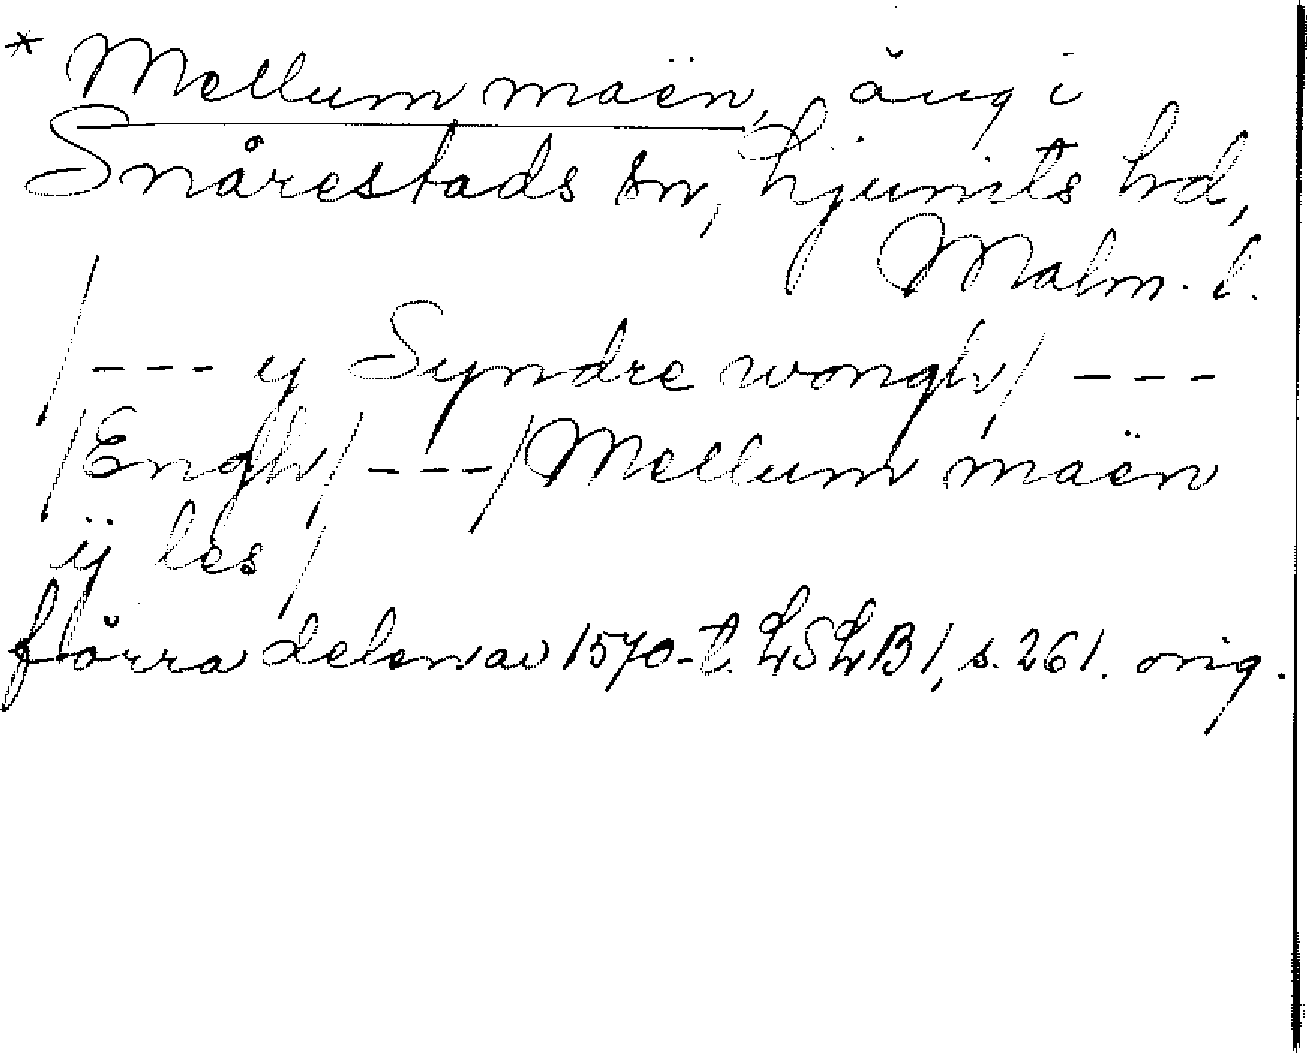 * Mellum maën, äng i
Snårestads sn, Ljunits hd,
Malm. l.
/--- y Syndre wongh/ ---
/Engh/ ---/Mellum maën
ÿ les/
förra delen av 1570-t. LSLB 1, s. 261. orig.